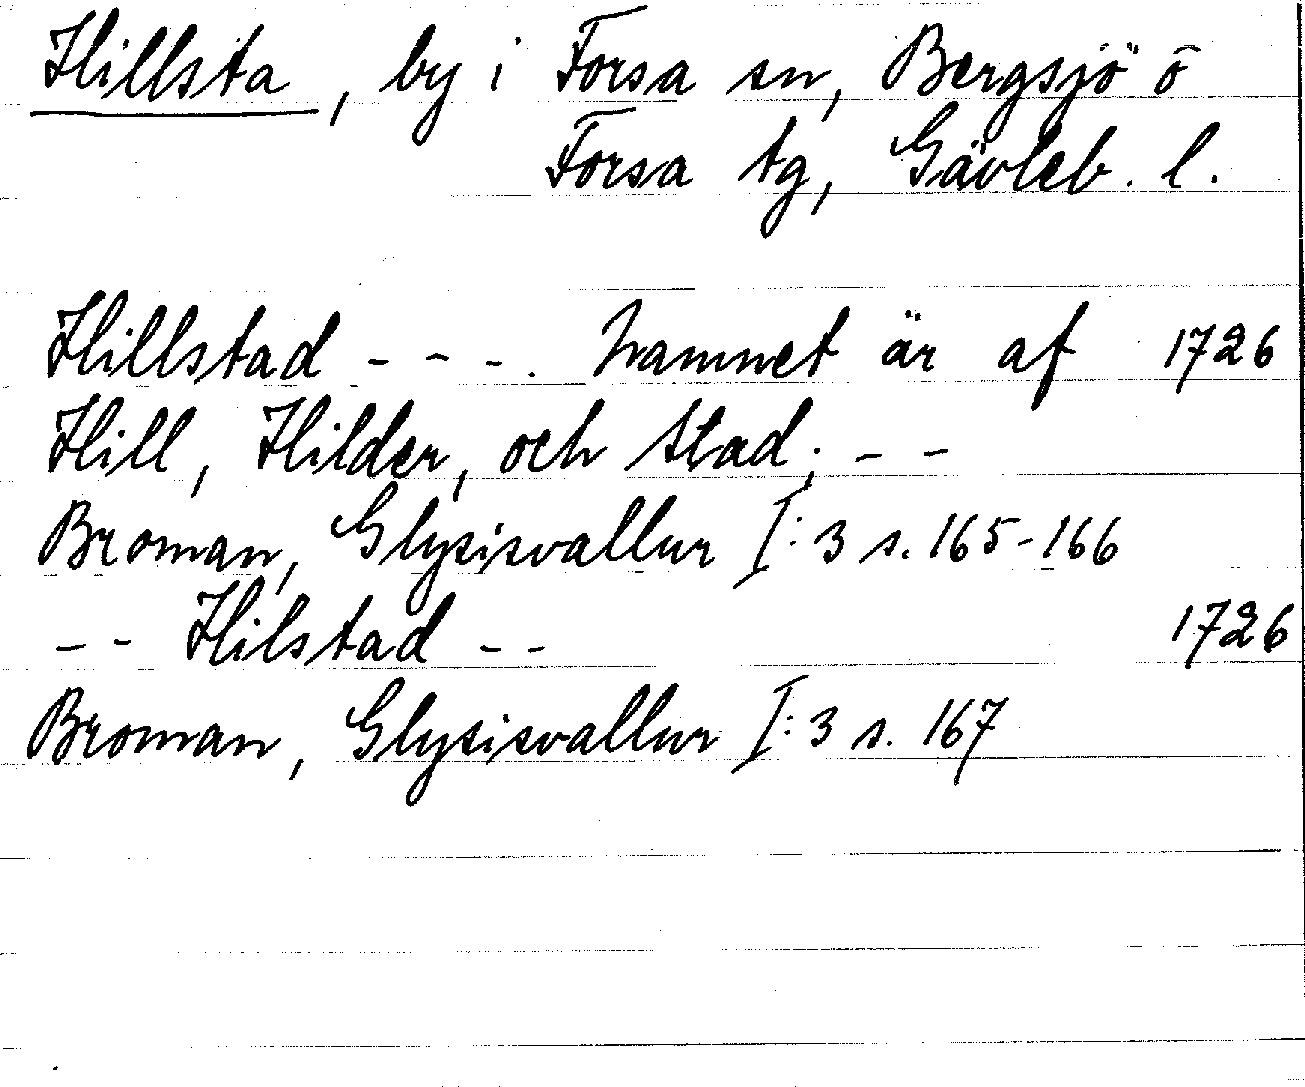 Hillsta, by i Forsa sn, Bergsjö o
Forsa tg, Gävleb. l.
Hillstad - - -. Namnet är af 1726
Hill, Hilder, och stad; - -
Broman, Glysisvallur I:3 s. 165-166
- - Hilstad - - 1726
Broman, Glysisvallur I:3 s. 167